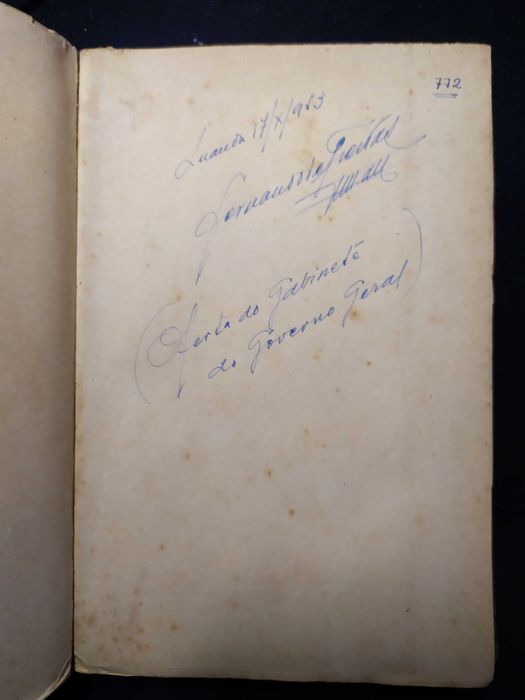 772
Luanda 17/X/953
Fernando de Freitas
(Oferta do Gabinete
do Govêrno Geral)